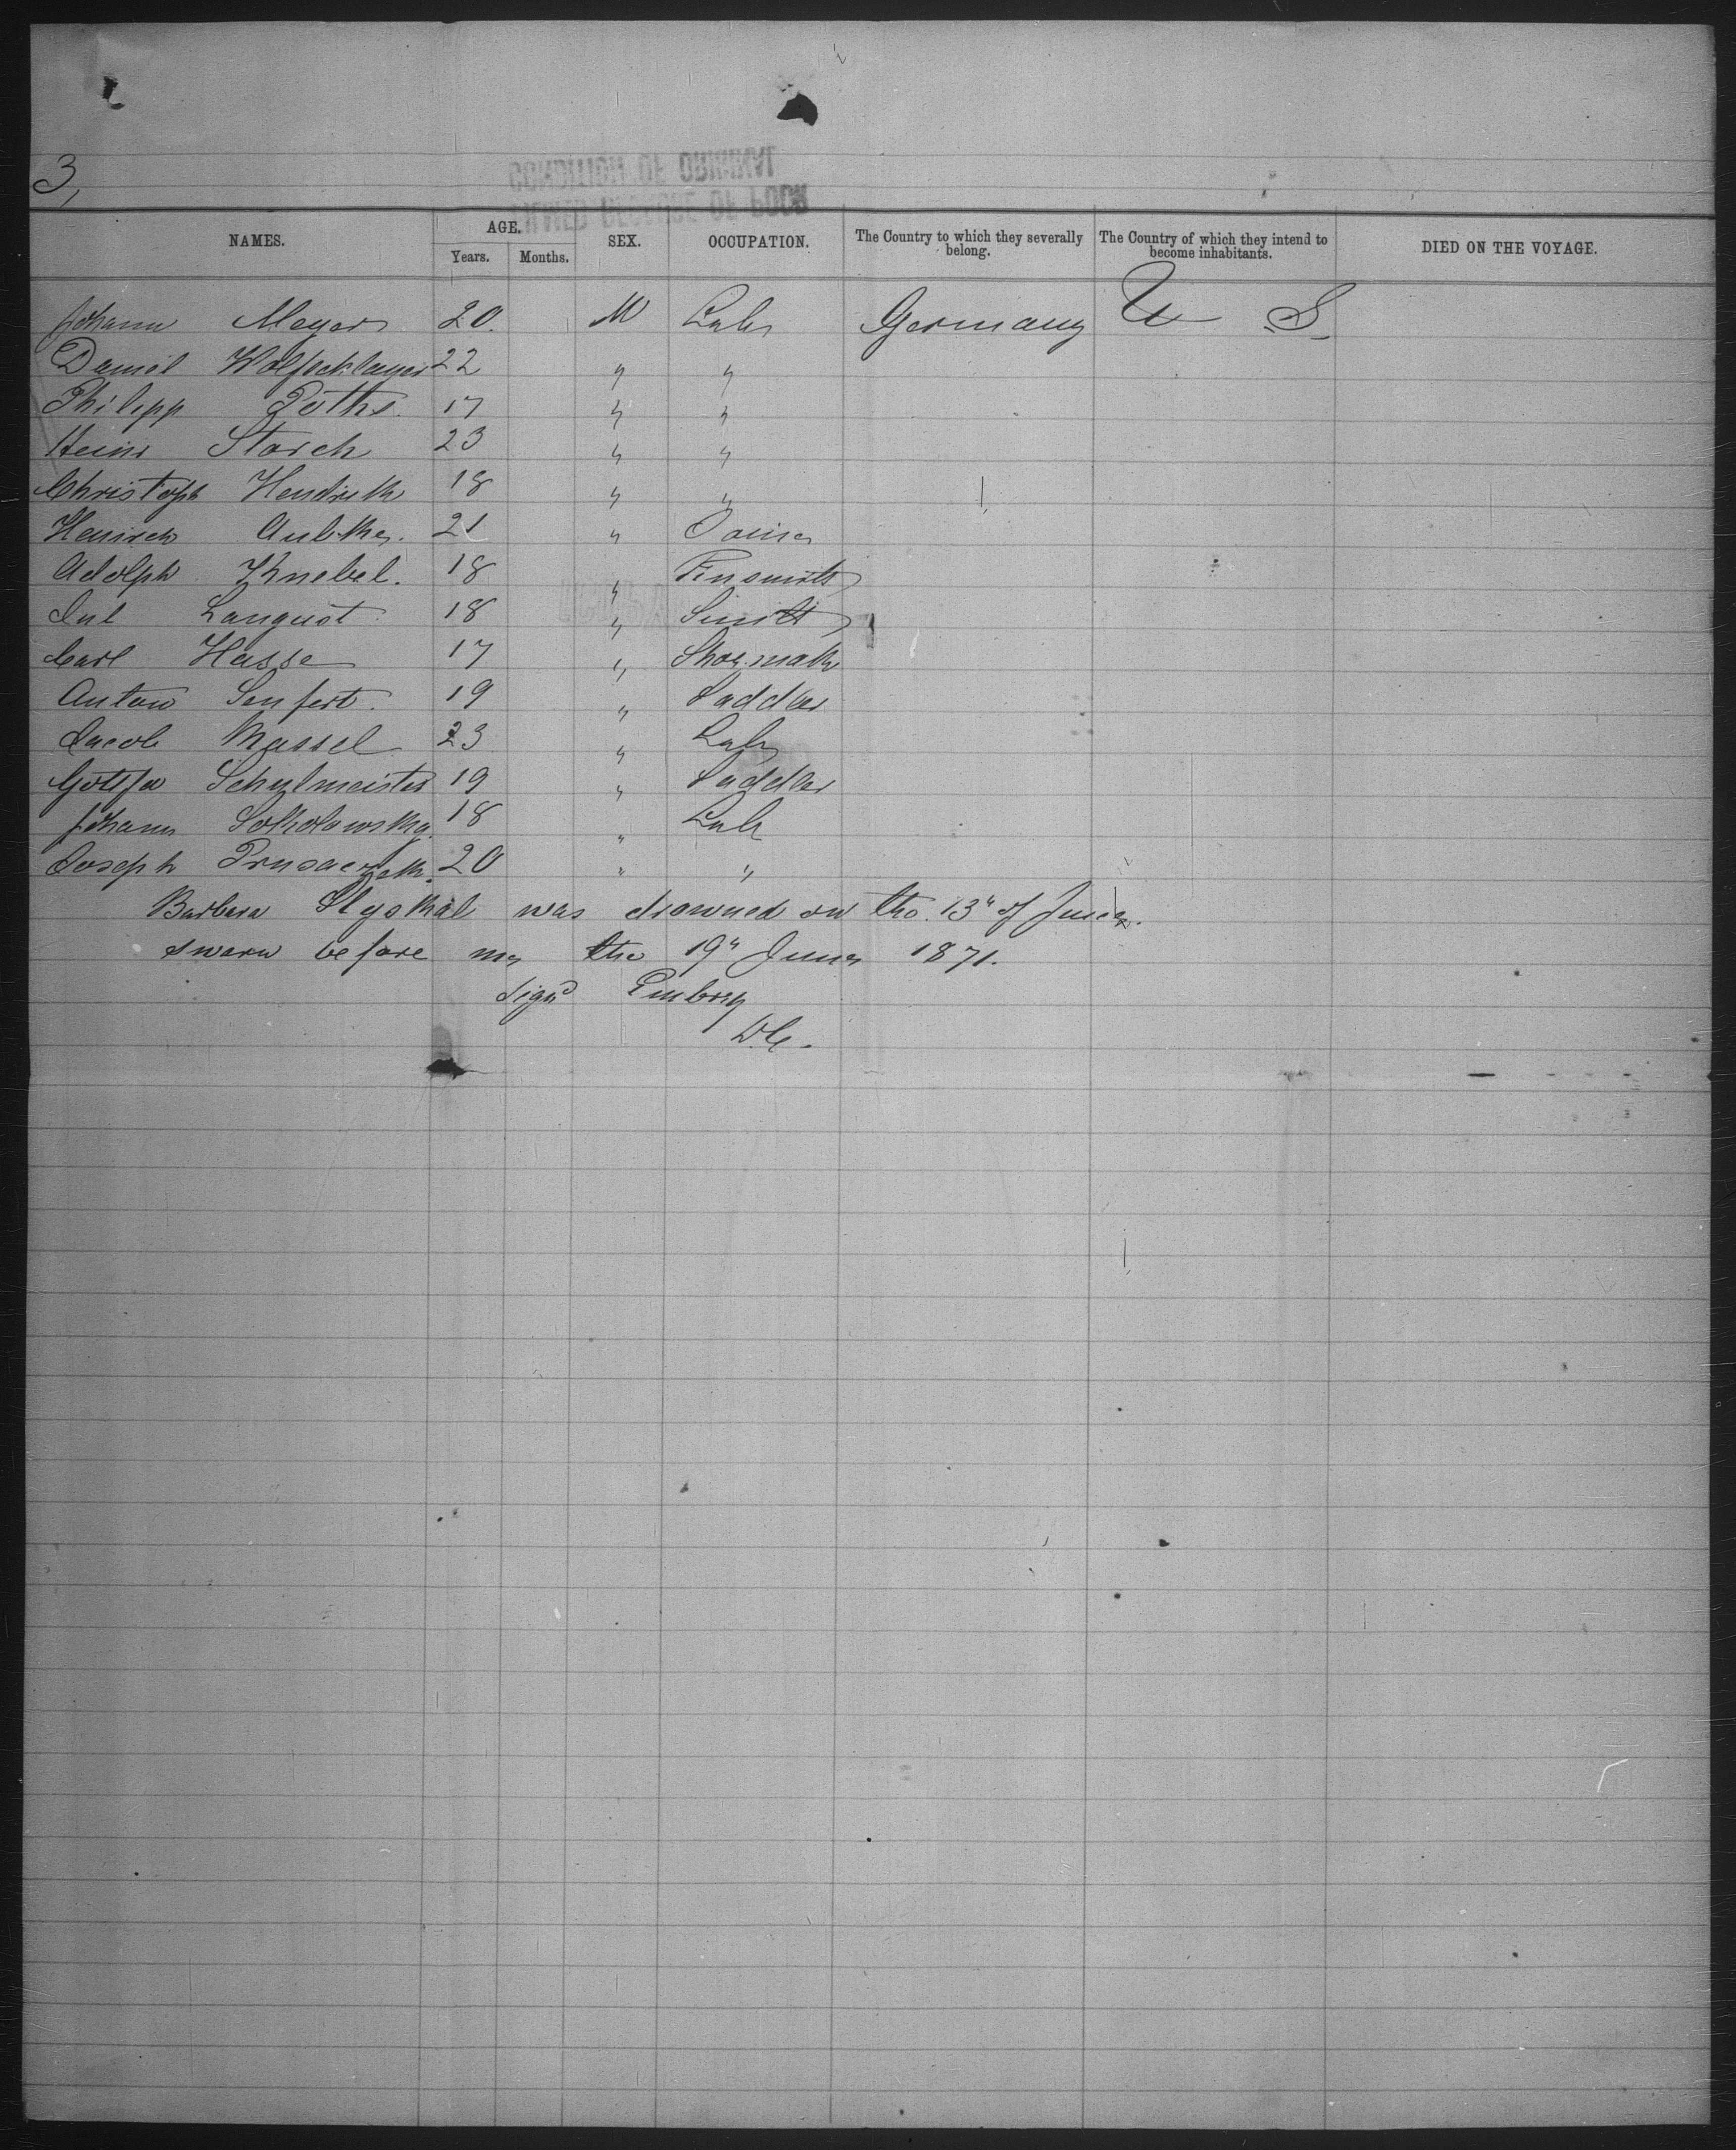 3,
NAMES. AGE. Years. Months. SEX. OCCUPATION. The Country to which they severally belong. The Country of which they intend to become inhabitants. DIED ON THE VOYAGE.
Johann Meyer 20. M Labr Germany U S
Daniel 22 " "
Philipp Pöths. 17 " "
Heinr Storch 23 " "
Christoph 18 " "
Heinrich 21 "
Adolph Knebel. 18 " Tinsmith
Jul Langust 18 " Smith
Carl Hasse 17 " Shoemak
Anton Senfert. 19 " Saddler
Jacob Massel 23 " Labr
Schulmeister 19 " Saddler
Johann Sokolowsky. 18 " Lab
Joseph 20 " "
Barbara was drowned on the 13" of June.
sworn before me the 19" June 1871.
Signd
D.C.